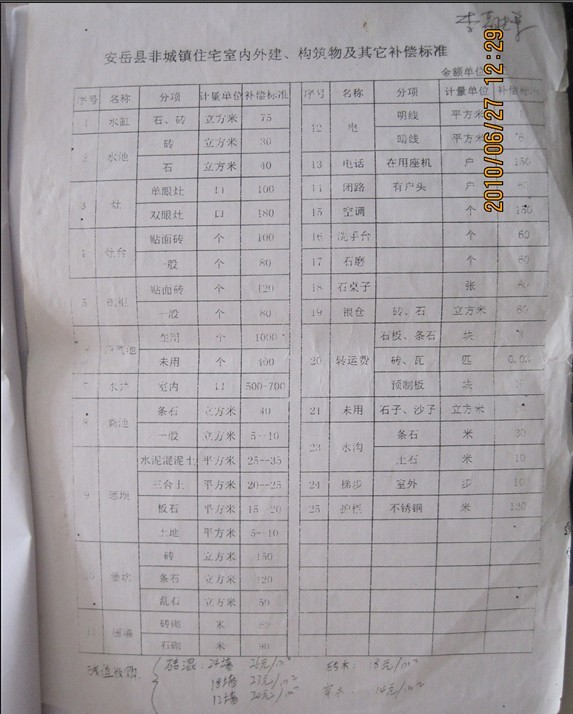 安岳县非城镇住宅室内外建、构筑物及其它补偿标准
金额单位
序号 名称 分项 计量单位 补偿标准 序号 名称 分项 计量单位 补偿标
1 水缸 石、砖 立方米 75 12 电 明线 平方米
2 水池 砖 立方米 30 暗线 平方米
石 立方米 40 13 电话 在用座机 户 150
3 灶 单眼灶 口 100 14 闭路 有户头 户
双眼灶 口 180 15 空调 个 150
4 灶台 贴面砖 个 100 16 洗手台 个 60
一般 个 80 17 石磨 个 60
5 贴面砖 个 120 18 石桌子 张 60
一般 个 80 19 粮仓 砖、石 立方米 60
个 1000 20 转运费 石板、条石 块
未用 个 400 砖、瓦 匹
7 室内 口 500-700 预制板 块
8 条石 立方米 40 21 未用 石子、沙子 立方米
一般 立方米 5--10 23 水沟 条石 米 30
9 水泥混泥土 平方米 25--35 土石 米 10
三合土 平方米 20--25 24 梯步 室外 步 10
板石 平方米 15--20 25 护栏 不锈钢 米 120
土地 平方米 5--10
砖 立方米 150
条石 立方米 120
乱石 立方米 50
11 围墙 砖砌 米
石砌 米 90
砖混: 24墙 26元/m²
18墙 23元/m²
12墙 20元/m²
2010/06/27 12:29